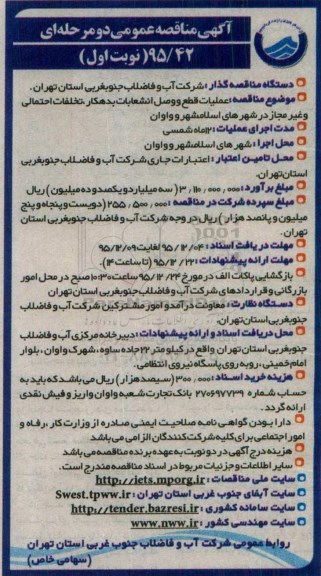 آگهی مناقصه عمومی دو مرحله ای
۹۵/۴۲ (نوبت اول)
دستگاه مناقصه گذار : شرکت آب و فاضلاب جنوبغربی استان تهران.
موضوع مناقصه : عملیات قطع و وصل انشعابات بدهکار ،تخلفات احتمالی
وغیر مجاز در شهر های اسلامشهر و واوان
مدت اجرای عملیات : ۱۲ماه شمسی
محل اجرا : شهر های اسلامشهر و واوان
محل تامین اعتبار : اعتبارات جاری شرکت آب و فاضلاب جنوبغربی
استان تهران.
مبلغ برآورد : ۳/۱۱۰/۰۰۰/۰۰۰ ( سه میلیارد و یکصد و ده میلیون ) ریال
مبلغ سپرده شرکت در مناقصه : ۲۵۵/۵۰۰/۰۰۰ (دویست و پنجاه و پنج
میلیون و پانصد هزار ) ریال در وجه شرکت آب و فاضلاب جنوبغربی استان
تهران.
مهلت دریافت اسناد : ۹۵/۱۲/۰۴ لغایت ۹۵/۱۲/۰۹
مهلت ارائه پیشنهادات : ۹۵/۱۲/۲۳ (تا ساعت ۱۴).
بازگشایی پاکات الف در مورخ ۹۵/۱۲/۲۴ ساعت ۱۰:۳۰ صبح در محل امور
بازرگانی و قراردادهای شرکت آب و فاضلاب جنوبغربی استان تهران
دستگاه نظارت : معاونت درآمد و امور مشترکین شرکت آب و فاضلاب
جنوبغربی استان تهران.
محل دریافت اسناد و ارائه پیشنهادات : دبیرخانه مرکزی آب و فاضلاب
جنوبغربی استان تهران واقع در کیلومتر ۲۲ جاده ساوه ، شهرک واوان ، بلوار
امام خمینی ، روبه روی پاسگاه نیروی انتظامی.
هزینه خرید اسناد : ۳۰۰/۰۰۰ (سیصد هزار ) ریال می باشد که باید به
حساب شماره ۲۷۰۶۹۷۷۳۹ بانک تجارت شعبه واوان واریز و فیش نقدی
ارائه گردد .
دارا بودن گواهی نامه صلاحیت ایمنی صادره از وزارت کار ، رفاه و
امور اجتماعی برای کلیه شرکت کنندگان الزامی می باشد
هزینه درج آگهی در دو نوبت به عهده برنده مناقصه می باشد
سایر اطلاعات و جزئیات مربوط در اسناد مناقصه مندرج است.
سایت ملی مناقصات : http://iets.mporg.ir
سایت آبفای جنوب غربی استان تهران : Swest.tpww.ir
سایت سامانه کشوری : http://tender.bazresi.ir
سایت مهندسی کشور : www.nww.ir
روابط عمومی شرکت آب و فاضلاب جنوب غربی استان تهران
(سهامی خاص)